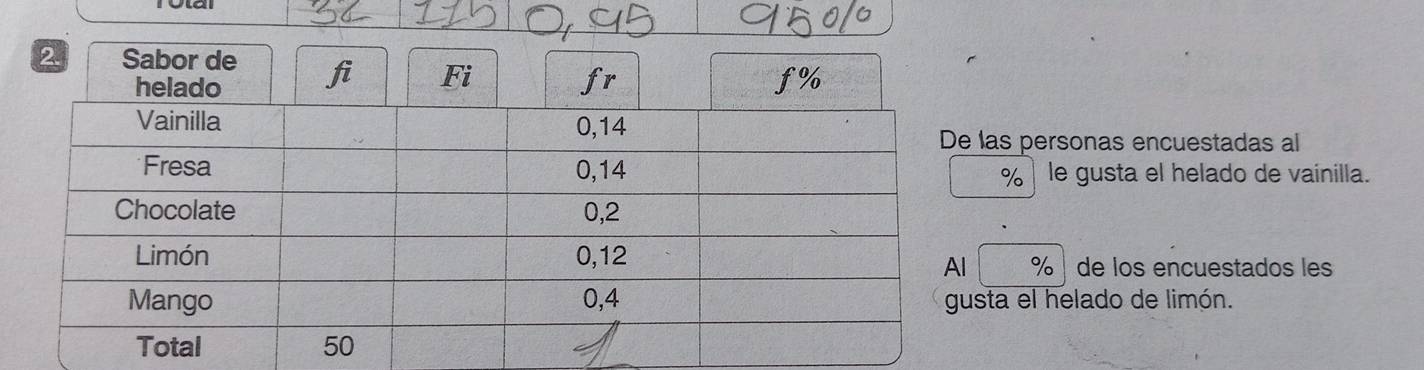 Total 32 115 0,95 95%
2. Sabor de helado fi Fi fr f%
Vainilla 0,14
Fresa 0,14
Chocolate 0,2
Limón 0,12
Mango 0,4
Total 50 1
De las personas encuestadas al
% le gusta el helado de vainilla.
Al % de los encuestados les
gusta el helado de limón.